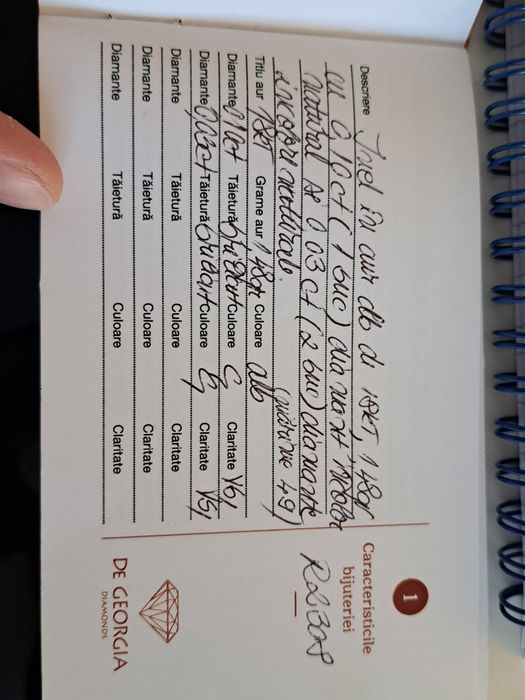 1
Caracteristicile
bijuteriei
R2130P
Descriere Inel în aur alb de 18KT, 1,48gr
cu 0,10ct (1 buc) diamant incolor
natural și 0,03ct (2 buc) diamante
incolore naturale. (mărime 49)
Titlu aur 18KT Grame aur 1,48gr Culoare alb
Diamante 0,10ct Tăietură briliant Culoare E Claritate VS1
Diamante 0,03ct Tăietură briliant Culoare E Claritate VS1
Diamante Tăietură Culoare Claritate
Diamante Tăietură Culoare Claritate
Diamante Tăietură Culoare Claritate
DE GEORGIA
DIAMONDS